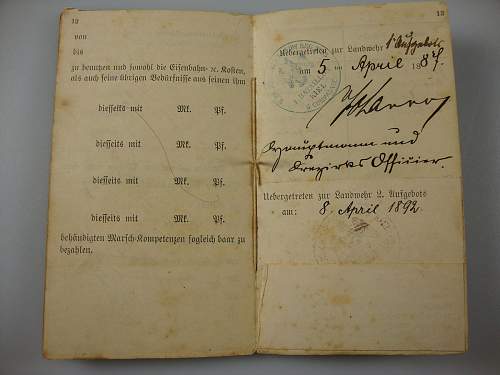 12
von
bis
zu benutzen und sowohl die Eisenbahn- ꝛc. Kosten,
als auch seine übrigen Bedürfnisse aus seinen ihm
diesseits mit Mk. Pf.
diesseits mit Mk. Pf.
diesseits mit Mk. Pf.
diesseits mit Mk. Pf.
behändigten Marsch-Kompetenzen sogleich baar zu
bezahlen.
13
Uebergetreten zur Landwehr 1. Aufgebots
am 5 April 1887.
KIEL
Hauptmann und
Bezirks Offizier.
Uebergetreten zur Landwehr 2. Aufgebots
am: 8. April 1892.